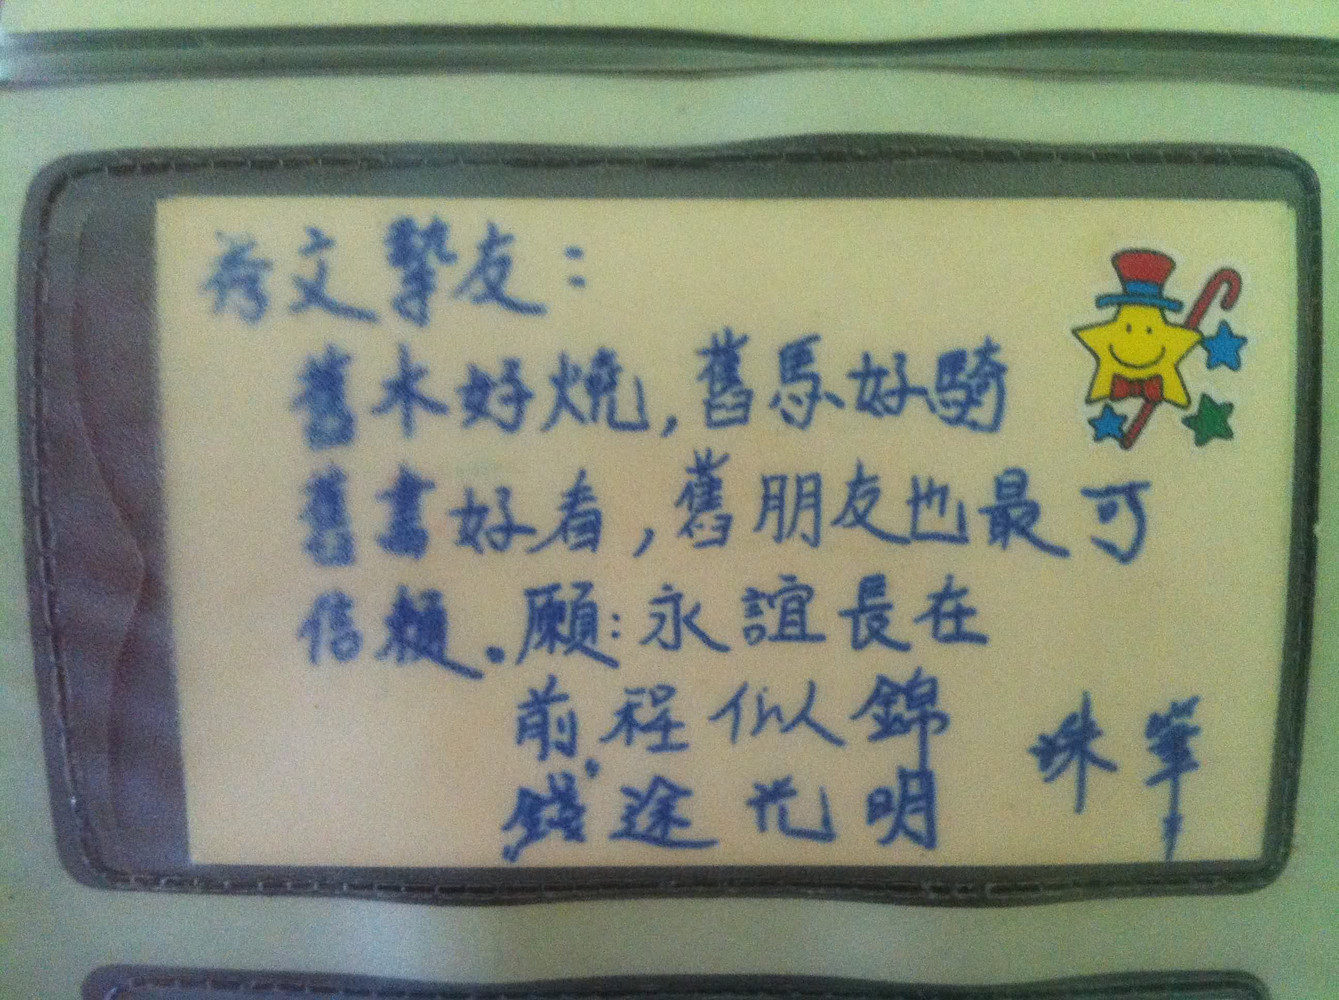 荷文摯友：
舊木好燒，舊馬好騎
舊書好看，舊朋友也最可
信賴。願：永誼長在
前程似錦
錢途光明
珠筆